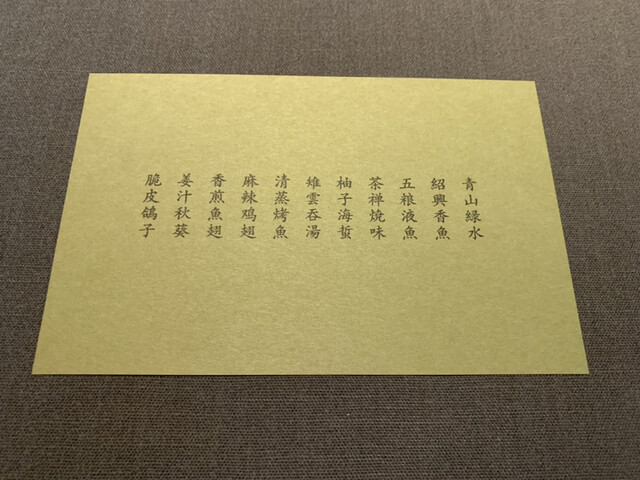 青山緑水
紹興香魚
五粮液魚
茶禅焼味
柚子海蜇
雉雲吞湯
清蒸烤魚
麻辣鸡翅
香煎魚翅
姜汁秋葵
脆皮鴿子